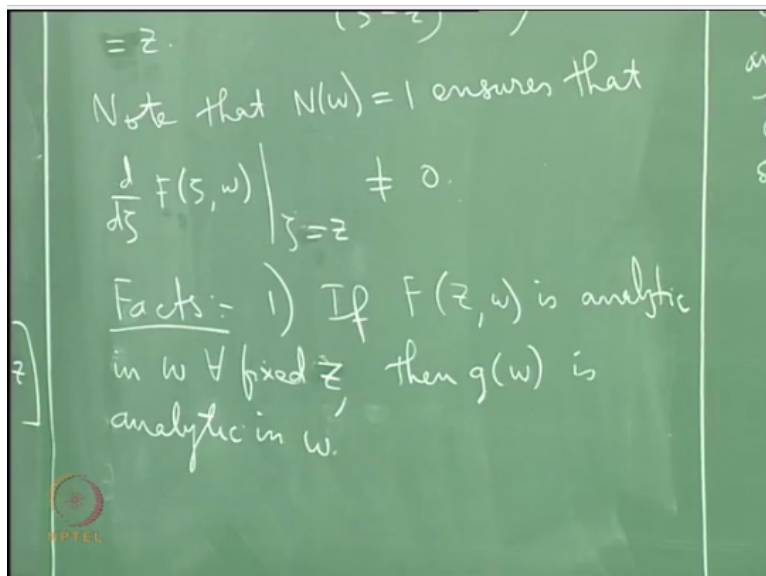 (ζ-z)
= z.
Note that N(w) = 1 ensures that
d/dζ F(ζ, w) | ζ=z ≠ 0.
Facts:- 1) If F(z, w) is analytic
in w ∀ fixed z, then g(w) is
analytic in w.
z]
NPTEL